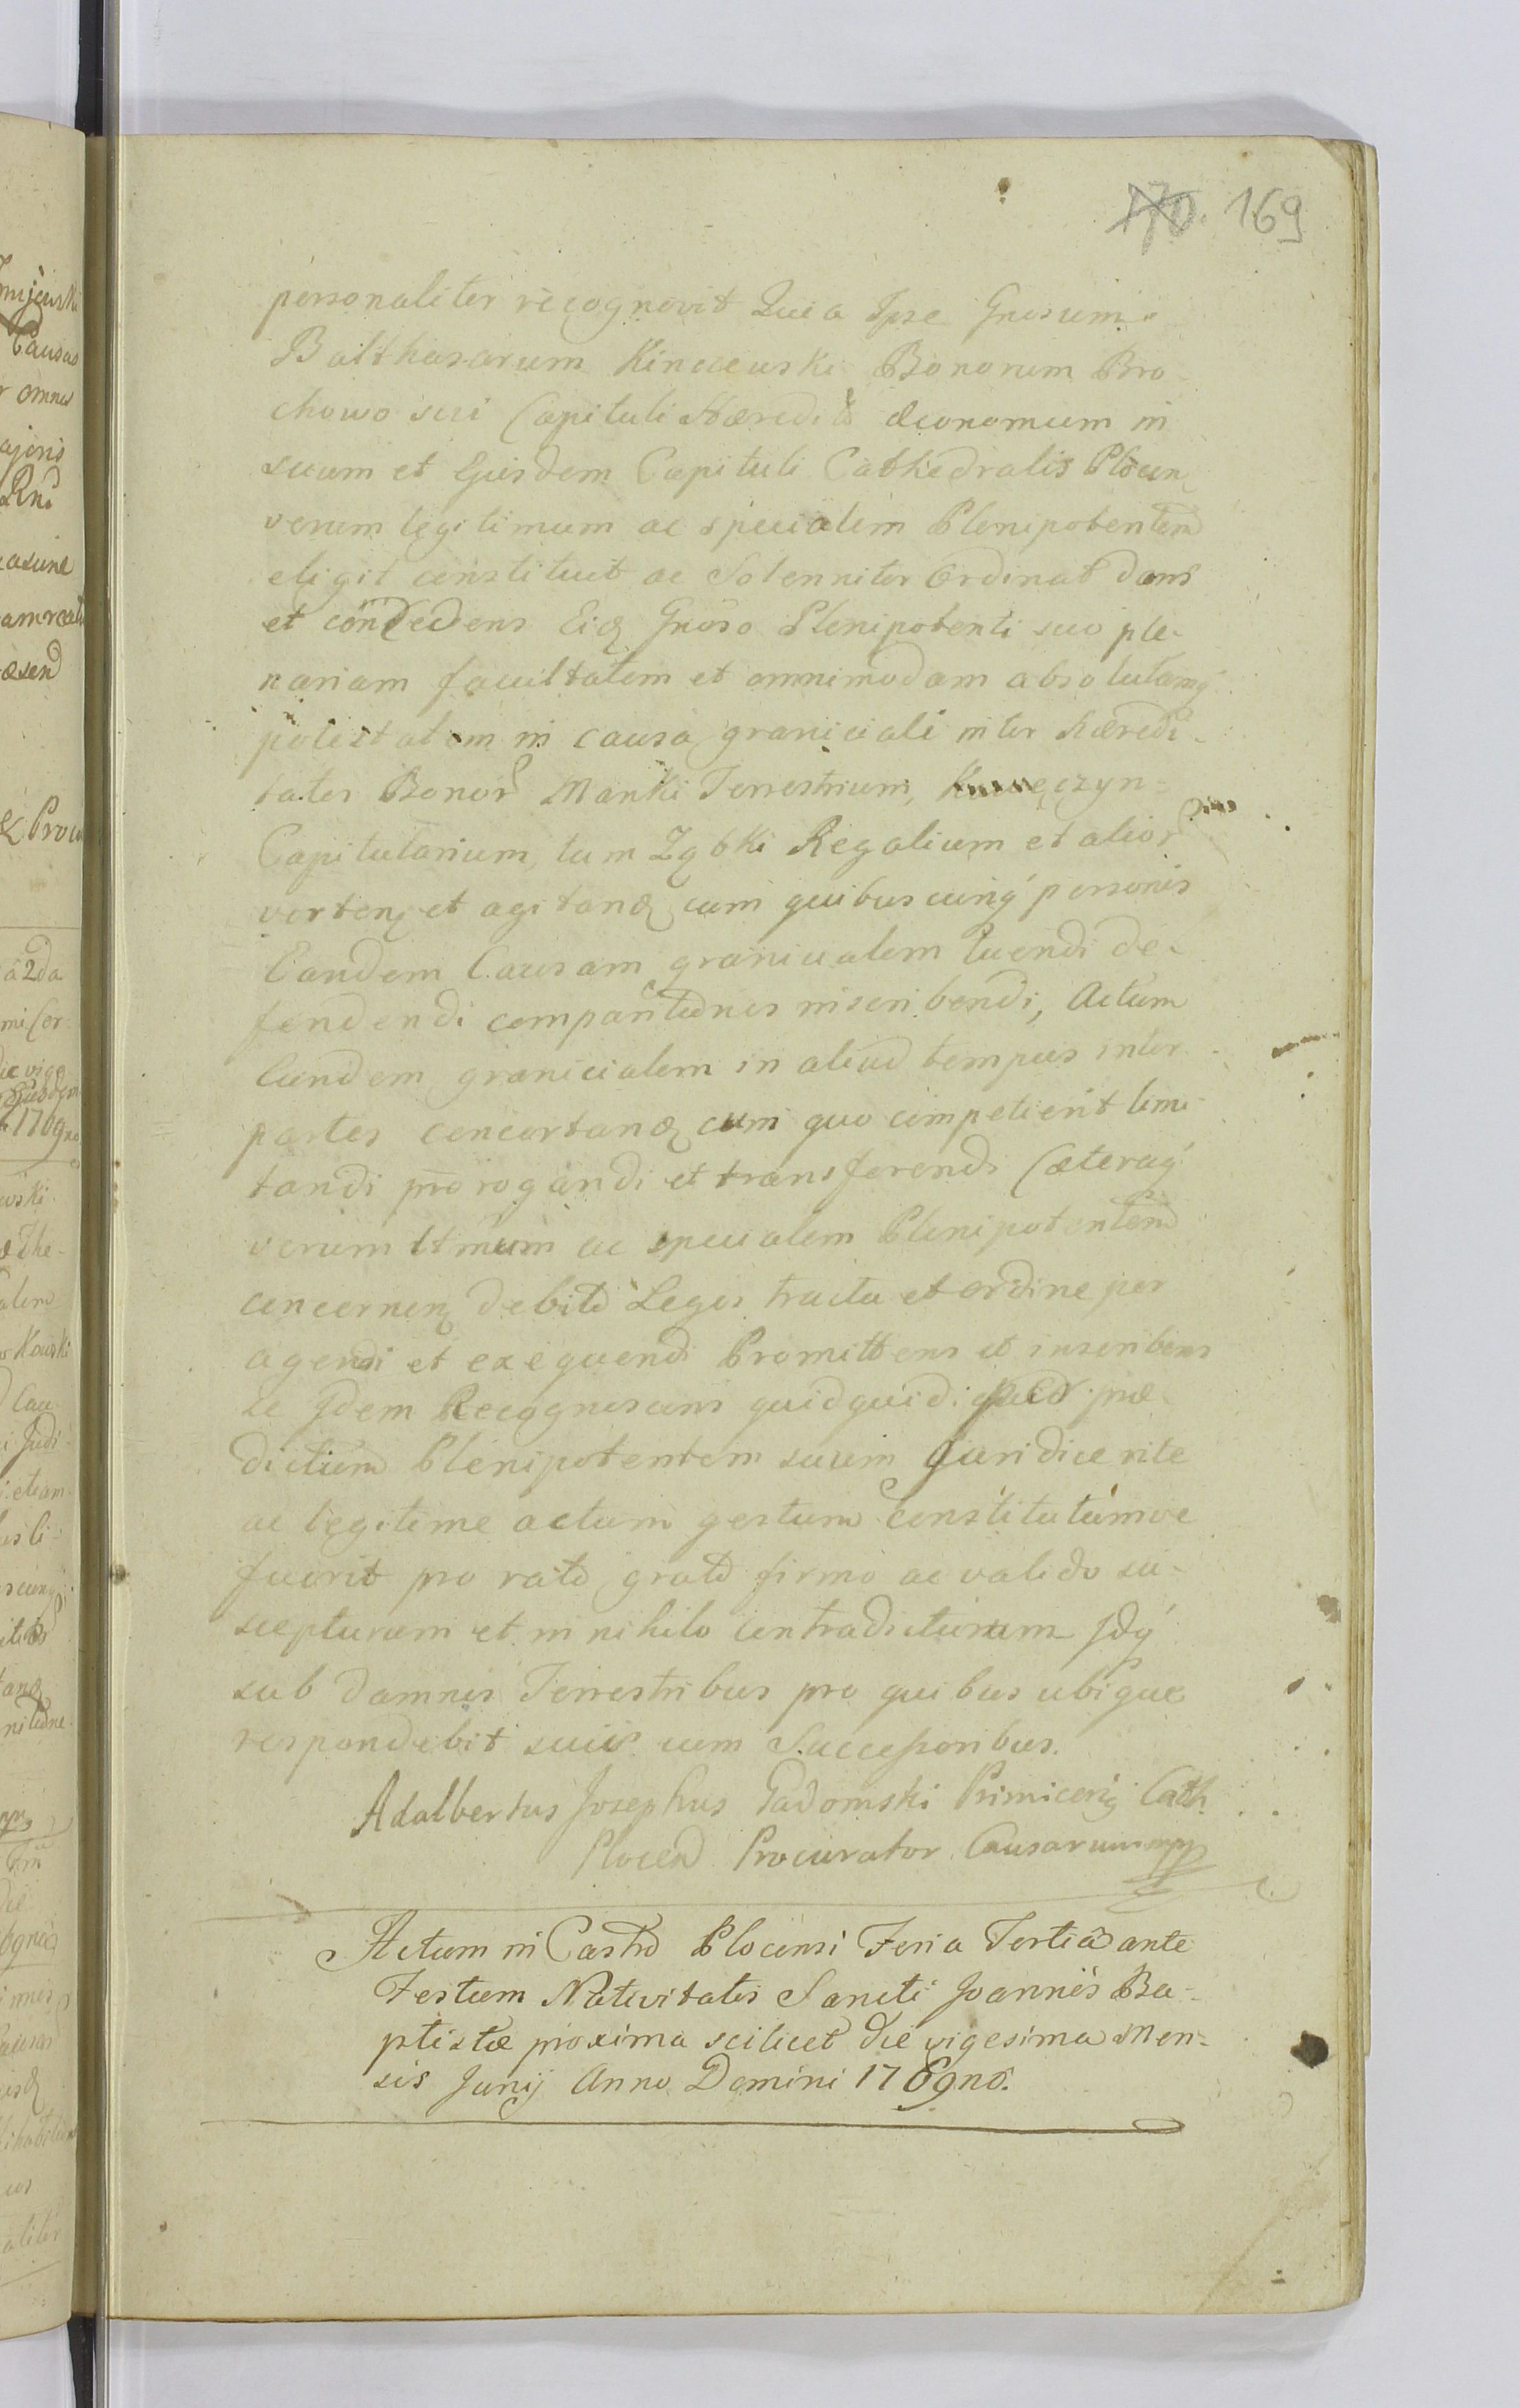 170. 169
personaliter recognovit Quia Ipse Gnosum
Balthasarum Kinacewski Bonorum Bro-
chowo sui Capituli Hæredit œconomum in
suum et Ejusdem Capituli Cathedralis Plocen
verum legitimum ac specialem Plenipotentem
eligit constituit ac Solenniter Ordinat dans
et concedens Eidq Gnoso Plenipotenti suo ple-
nariam facultatem et omnimodam absolutamq
potestatem in causa graniciali inter Hæredi-
tates Bonor Manki Terrestrium, Kuwęczyn-
Capitularium, tum Ząbki Regalium et alior
verten et agitand cum quibuscunq personis
Eandem Causam granicialem tuendi de-
fendendi comparitiones inscribendi, Actum
Eundem granicialem in aliud tempus inter
partes concertand cum quo competierit limi-
tandi prorogandi et transferendi Cæteraq
verum ltmum ac specialem Plenipotentem
concernen debito Legis tractu et ordine per
agendi et exequendi Promittens et inscribens
Se Idem Recognoscens quidquid: præ-
dictum Plenipotentem suum Juridice rite
ac legitime actum gestum constitutumve
fuerit pro rato grato firmo ac valido su-
scepturum et in nihilo contradicturum Idq
sub damnis Terrestribus pro quibus ubique
respondebit suis cum Successoribus.
Adalbertus Josephus Gadomski Primiceri Cath
Plocen Procurator Causarum mpp
Actum in Castro Plocensi Feria Tertia ante
Festum Nativitatis Sancti Joannis Ba-
ptistæ proxima scilicet die vigesima Men-
sis Junij Anno Domini 1769no.